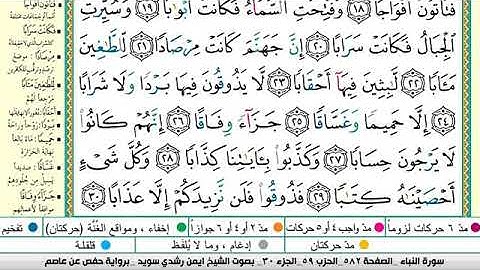 فَتَأْتُونَ أَفْوَاجًا ١٨ وَفُتِحَتِ ٱلسَّمَآءُ فَكَانَتْ أَبْوَٰبًا ١٩ وَسُيِّرَتِ
ٱلْجِبَالُ فَكَانَتْ سَرَابًا ٢٠ إِنَّ جَهَنَّمَ كَانَتْ مِرْصَادًا ٢١ لِّلطَّٰغِينَ
مَـَٔابًا ٢٢ لَّٰبِثِينَ فِيهَآ أَحْقَابًا ٢٣ لَّا يَذُوقُونَ فِيهَا بَرْدًا وَلَا شَرَابًا
٢٤ إِلَّا حَمِيمًا وَغَسَّاقًا ٢٥ جَزَآءً وِفَاقًا ٢٦ إِنَّهُمْ كَانُوا۟
لَا يَرْجُونَ حِسَابًا ٢٧ وَكَذَّبُوا۟ بِـَٔايَٰتِنَا كِذَّابًا ٢٨ وَكُلَّ شَىْءٍ
أَحْصَيْنَٰهُ كِتَٰبًا ٢٩ فَذُوقُوا۟ فَلَن نَّزِيدَكُمْ إِلَّا عَذَابًا ٣٠
فتأتون أفواجا
فكانت سرابا
مرصادا : موضع
للطاغين مئابا
أحقابا
حميما
غساقا
مدّ ٦ حركات لزوماً
مدّ واجب ٤ أو ٥ حركات
مدّ ٢ أو ٤ أو ٦ جوازاً
إخفاء ، ومواقع الغُنَّة (حركتان)
تفخيم
مدّ حركتان
إدغام ، وما لا يُلفَظ
قلقلة
سورة النباء _الصفحة ٥٨٢_ الحزب ٥٩_ الجزء ٣٠_ بصوت الشيخ ايمن رشدي سويد _برواية حفص عن عاصم